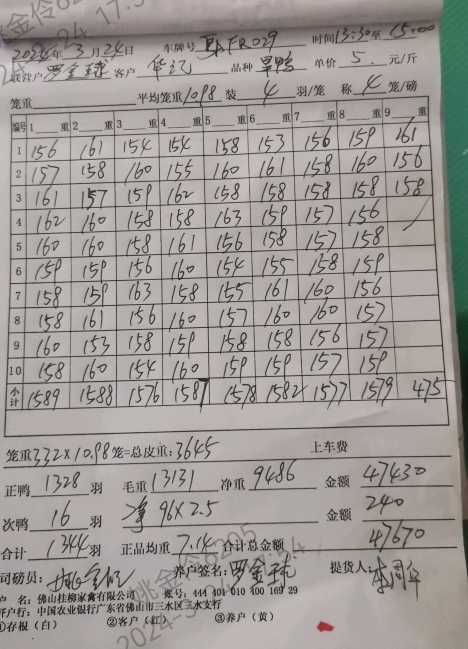 2024年3月24日 车牌号 FR029 时间13:30至15:00
联营户 罗金球 客户 华记 品种 单鸭 单价 5. 元/斤
笼重 平均笼重10.98 装 4 羽/笼 称 4 笼/磅
编号 1 重 2 重 3 重 4 重 5 重 6 重 7 重 8 重 9 重
1 156 161 154 154 158 153 156 159 161
2 157 158 160 155 160 161 158 160 156
3 161 157 159 162 158 158 158 158 158
4 162 160 158 158 163 159 157 156
5 160 160 158 161 156 158 157 158
6 159 159 156 160 154 155 158 159
7 158 159 163 158 155 161 160 156
8 158 161 156 160 157 160 160 157
9 160 153 158 159 158 158 156 157
10 158 160 154 160 159 159 157 159
小计 1589 1588 1576 1587 1578 1582 1577 1579 475
笼重332×10.98 笼=总皮重:3645 上车费
正鸭 1328 羽 毛重 13131 净重 9486 金额 47430
次鸭 16 羽 净 96×2.5 金额 240
合计 1344 羽 正品均重 7.14 合计总金额 47670
司磅员: 姚金伶 养户签名: 罗金球 提货人:
户 名: 佛山挂柳家禽有限公司 账号: 444 401 010 400 169 29
开户行: 中国农业银行广东省佛山市三水区三水支行
①存根(白) ②客户(红) ③养户(黄)